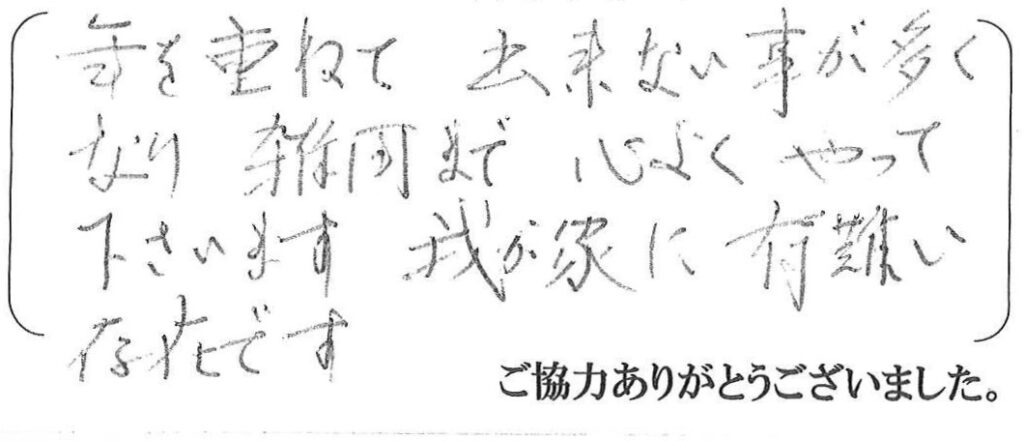 年を重ねて 出来ない事が多く
なり 雑用まで 心よく やって
下さいます 我が家に 有難い
存在です
ご協力ありがとうございました。